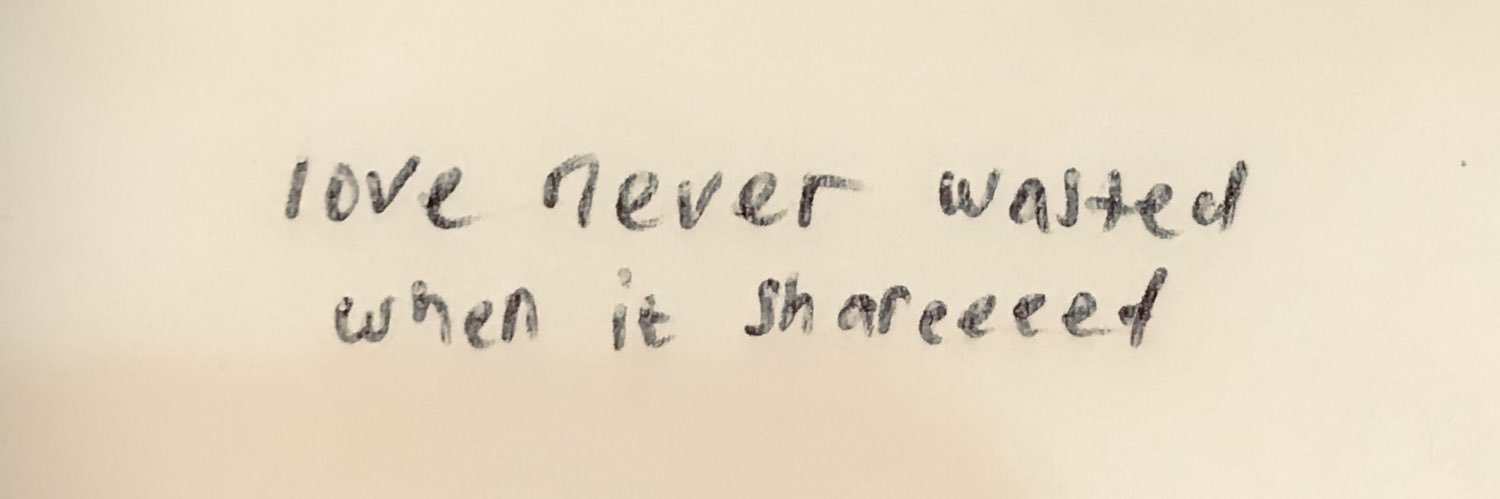 love never wasted
when it shareeeed